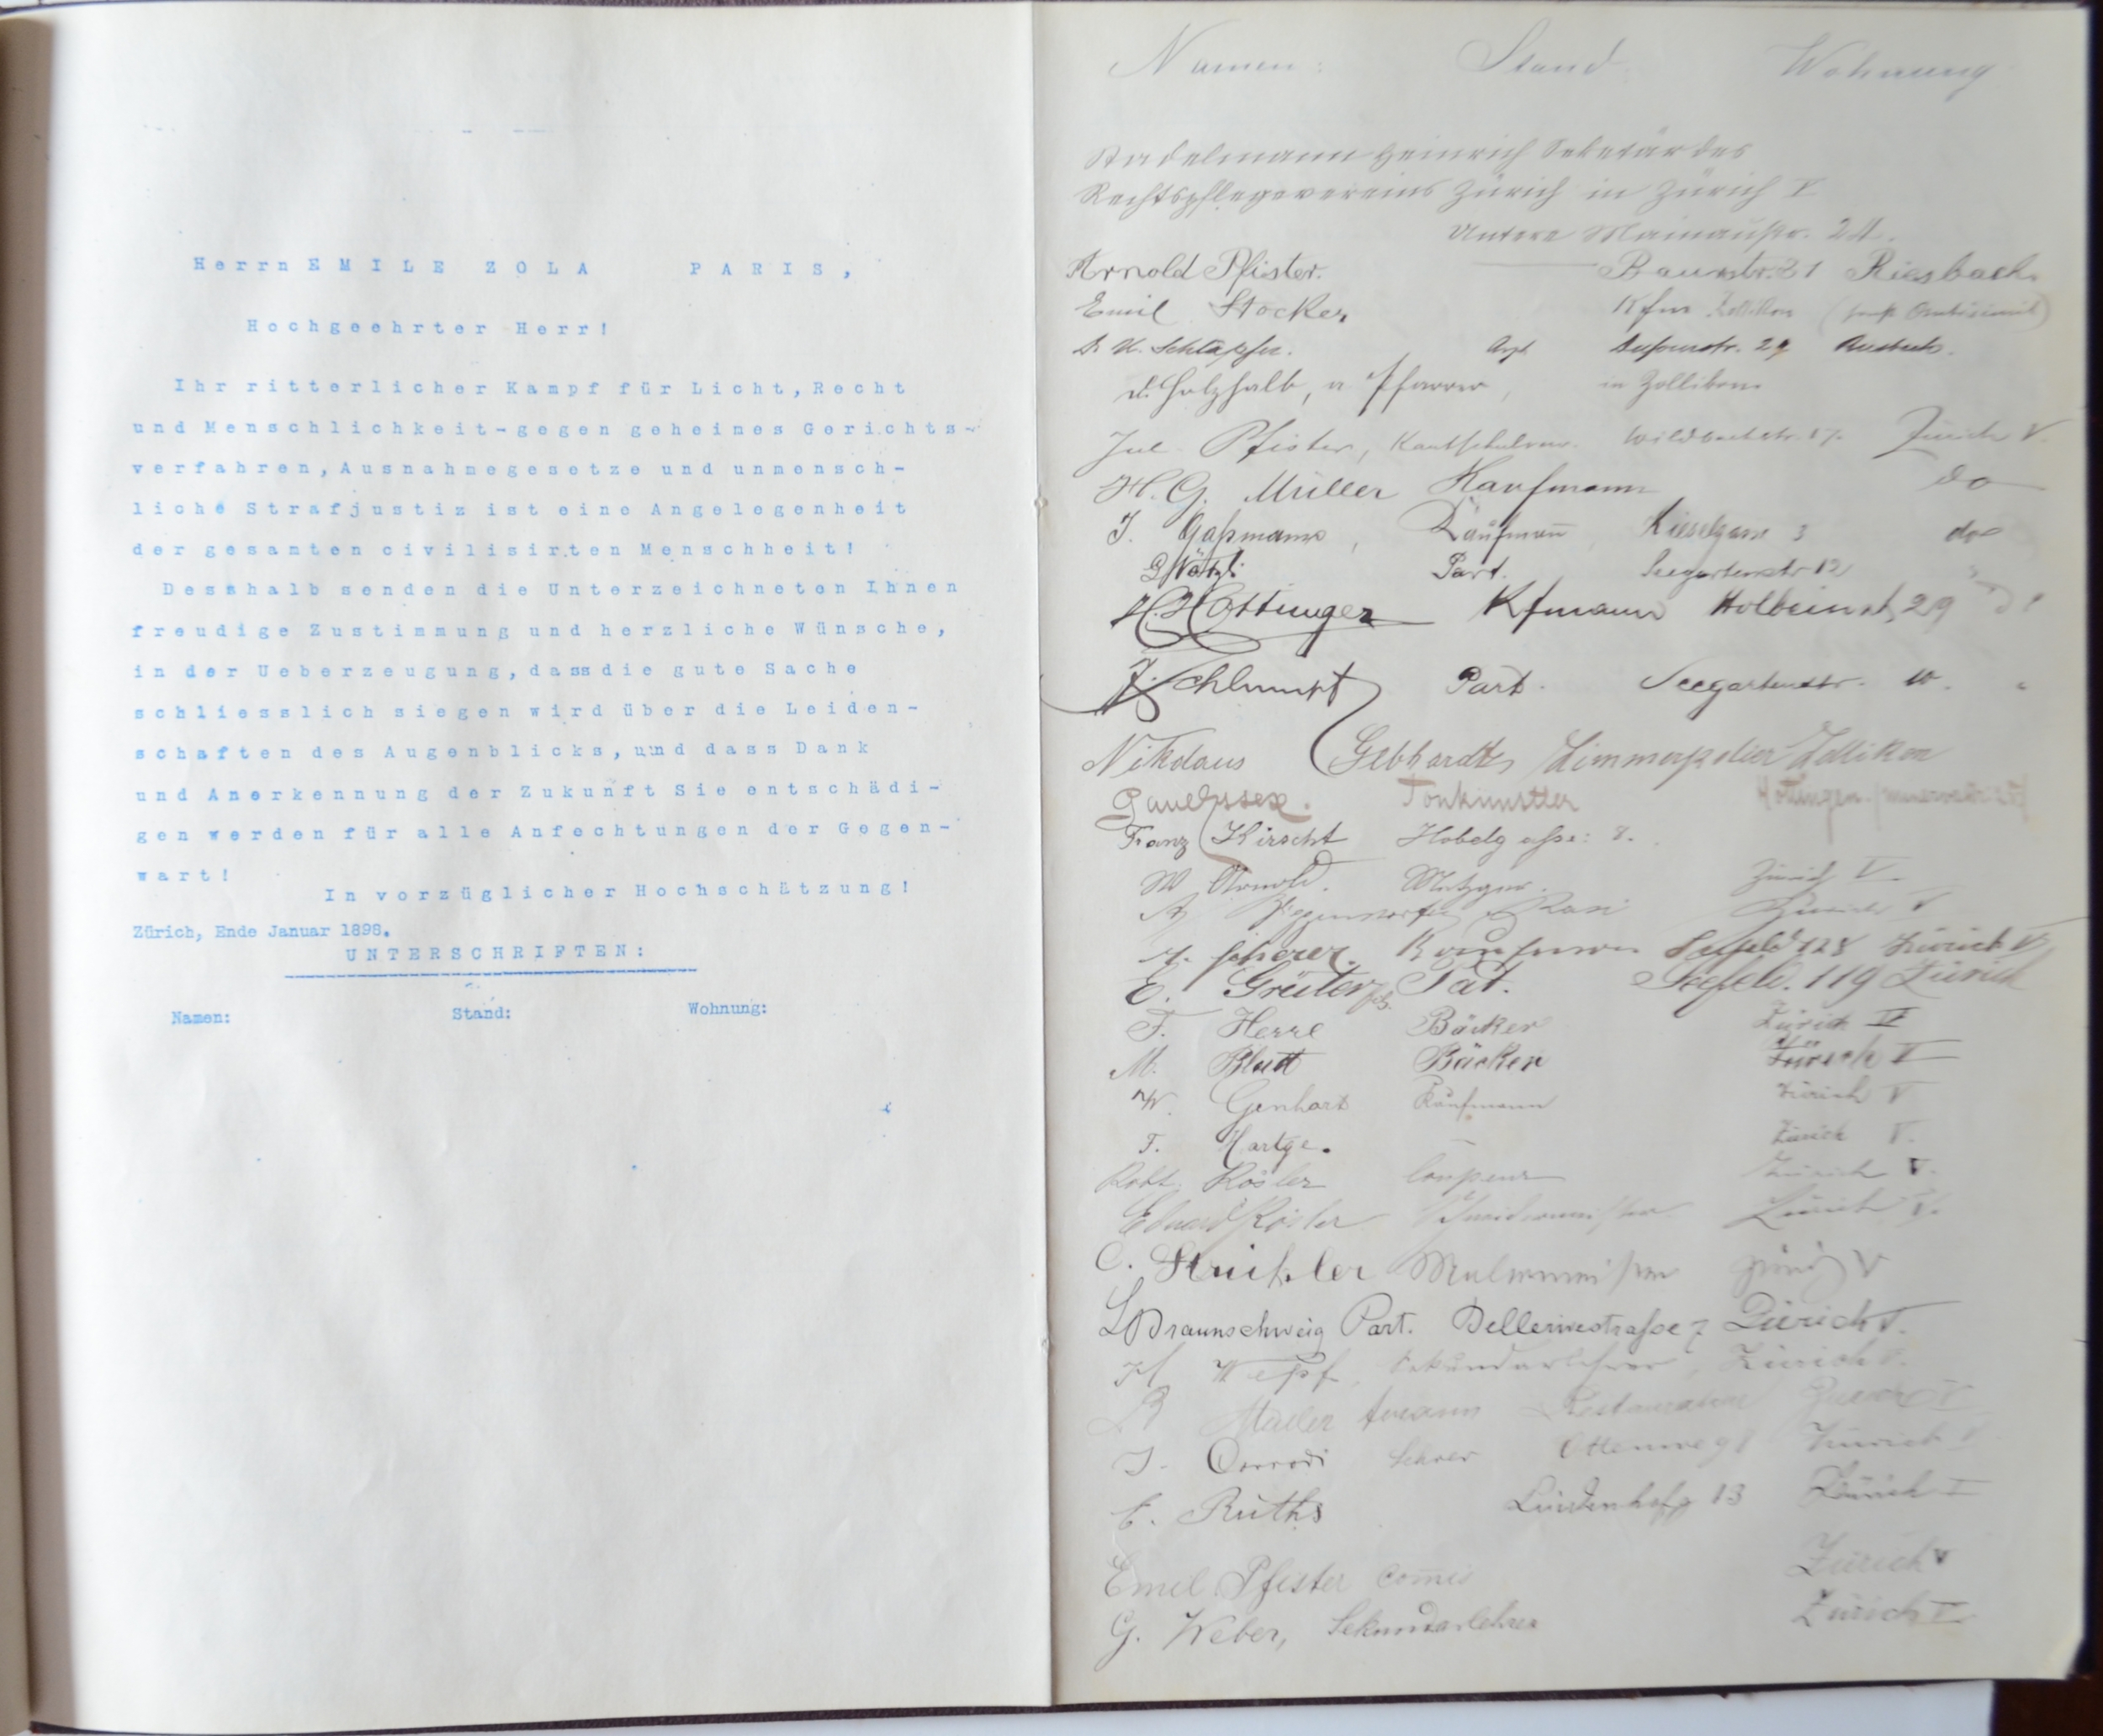 Herrn EMILE ZOLA PARIS,
Hochgeehrter Herr!
Ihr ritterlicher Kampf für Licht, Recht
und Menschlichkeit-gegen geheimes Gerichts-
verfahren, Ausnahmegesetze und unmensch-
liche Strafjustiz ist eine Angelegenheit
der gesamten civilisirten Menschheit!
Desshalb senden die Unterzeichneten Ihnen
freudige Zustimmung und herzliche Wünsche,
in der Ueberzeugung, dass die gute Sache
schliesslich siegen wird über die Leiden-
schaften des Augenblicks, und dass Dank
und Anerkennung der Zukunft Sie entschädi-
gen werden für alle Anfechtungen der Gegen-
wart!
In vorzüglicher Hochschätzung!
Zürich, Ende Januar 1898.
UNTERSCHRIFTEN:
Namen: Stand: Wohnung:
Namen: Stand. Wohnung
Stadelmann Heinrich Sekretär des
Rechtspflegevereins Zürich in Zürich V
Untere Mainaustr. 24.
Arnold Pfister. Baurstr. 21 Riesbach.
Emil Stocker Kfm Zollikon
Schläpfer. Arzt Dufourstr. 29
Holzhalb, a Pfarrer, in Zollikon
Jul. Pfister, Wildbachstr. 17. Zürich V.
H. G. Müller Kaufmann do
J. Gaßmann, Kaufmann Kieselgasse 3 do
Part. Seegartenstr 12
H. Hottinger Kfmann Holbeinst. 29
J. Schlumpf Part. Seegartenstr. 10. "
Nikolaus Gebhardt, Zimmerpolier Zollikon
Tonkünstler Hottingen.
Franz Kirscht Hobelgasse: 8.
W Arnold. Metzger. Zürich V
Zürich V
Scherer. Kaufmann Seefeld 128 Zürich V
E. Grüter Seefeld. 119 Zürich
F. Herre Bäcker Zürich V
M. Blatt Bäcker Zürich V
W. Genhart Kaufmann Zürich V
F. Hartge. Zürich V.
Robt. Rösler Coupeur Zürich V.
Eduard Rösler Schneidermeister Zürich V.
C. Strickler Malermeister Zürich V
L Braunschweig Part. Bellerivestraße 7 Zürich V.
H. Wepf, Sekundarlehrer, Zürich V.
Restaurant Zürich V
J. Corrodi Lehrer Ottenweg Zürich V
E. Ruths Lindenhof 13 Zürich I
Emil Pfister Comis Zürich V
G. Weber, Sekundarlehrer Zürich V